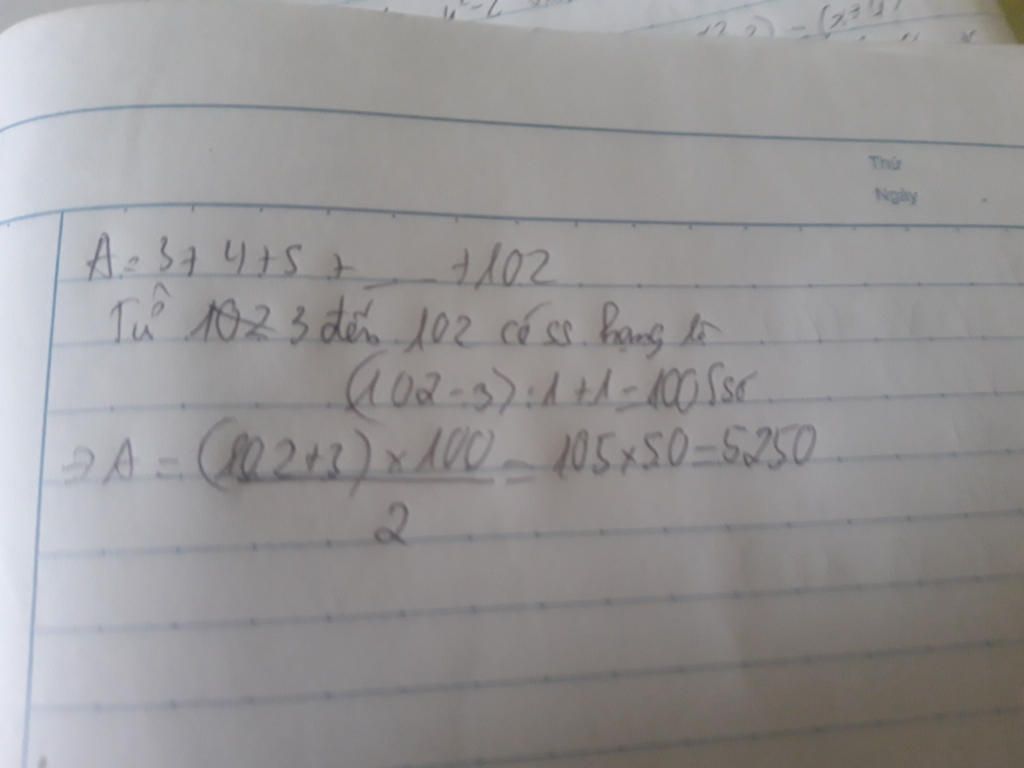 Thứ
Ngày
A = 3 + 4 + 5 + ... + 102
Từ 102 3 đến 102 có ss hạng là
(102 - 3) : 1 + 1 = 100 (số
=> A = (102+3) × 100 / 2 = 105 × 50 = 5250